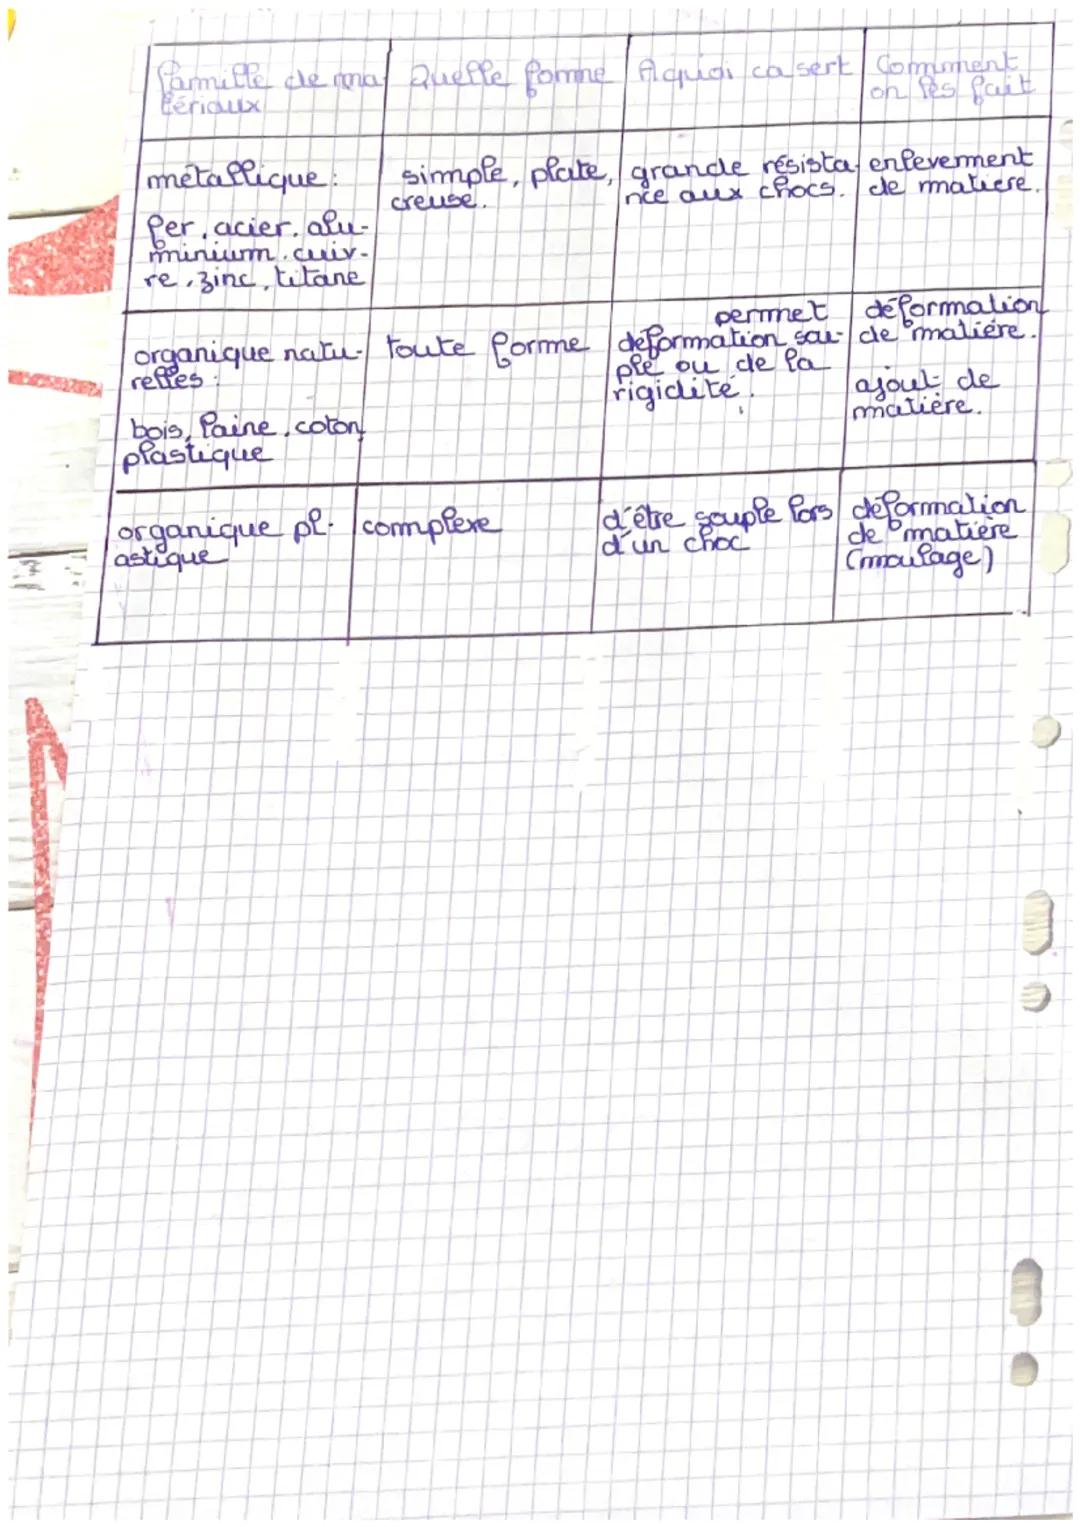 famille de ma
tériaux
Quelle forme
A quoi ca sert
Comment
on les fait
métallique :
fer, acier. alu-
minium. cuiv-
re, zinc, titane
simple, plate,
creuse.
grande résista
nce aux chocs.
enlevement
de matiere.
organique natu-
relles :
bois, laine, coton
plastique
toute forme
permet
déformation sou-
ple ou de la
rigidité.
déformation
de matiére.
ajout de
matière.
organique pl-
astique
complexe
d'être souple lors
d'un choc
déformation
de matière
(moulage)